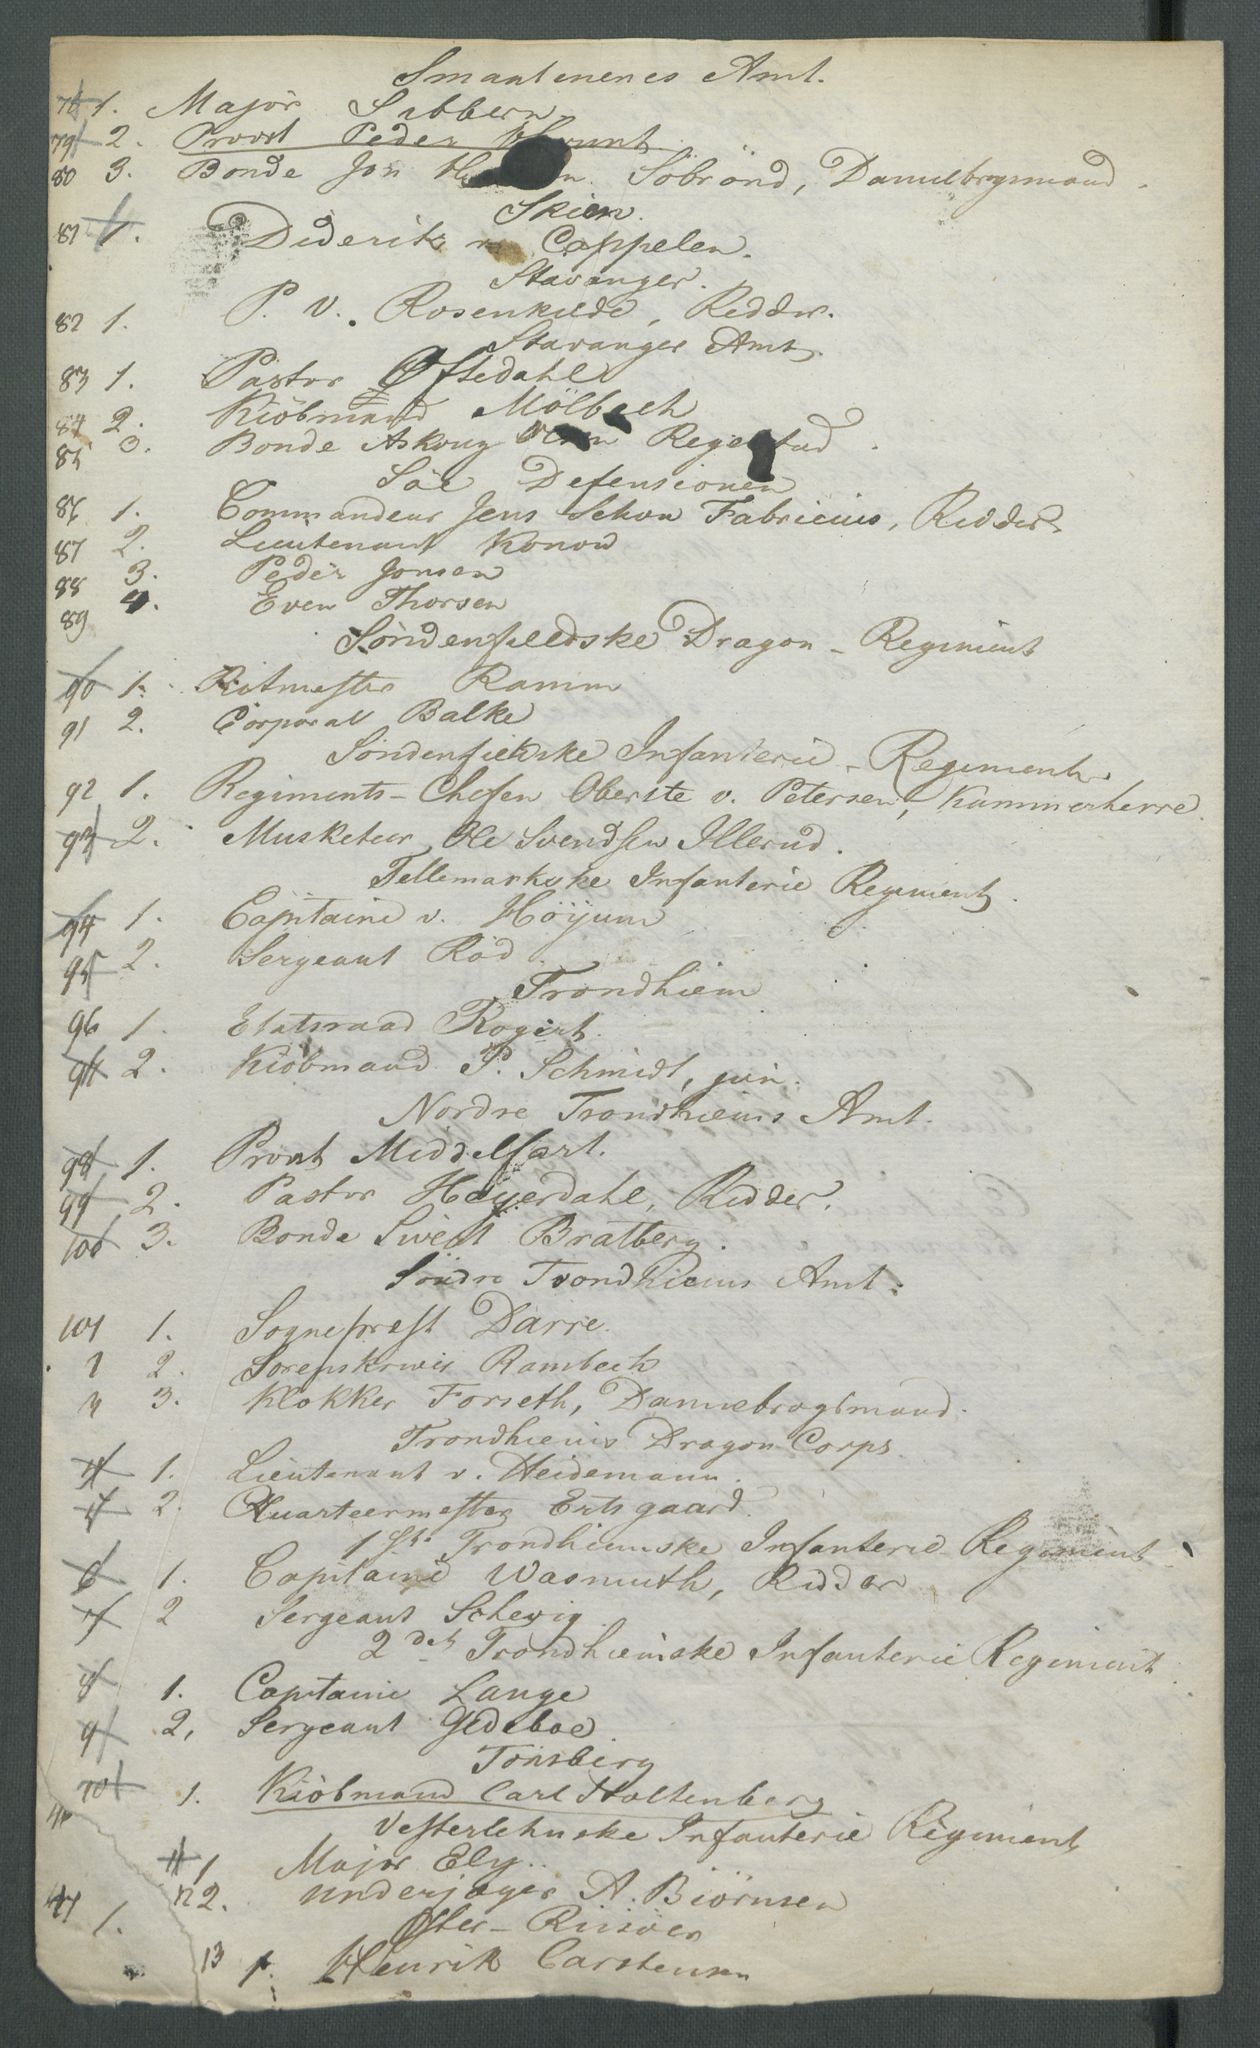 Smaalenenes Amt.
78 1. Major Sibbern
79 2. Provst Peder
80 3. Bonde Jon Söbrönd, Dannebrogsmand.
Skien.
81 1. Diderik v. Cappelen.
Stavanger.
82 1. P. V. Rosenkilde, Ridder.
Stavanger Amt
83 1. Pastor Oftedahl
84 2. Kiöbmand Mölbach
85 3. Bonde Askoug Regestad.
Söe Defensionen
86 1. Commandeur Jens Schou Fabricius, Ridder
87 2. Lieutenant Konow
88 3. Peder Jonsen
89 4. Even Thorsen
Söndenfieldske Dragon-Regiment
90 1. Ritmester Ramm
91 2. Corporal Balke
Söndenfieldske Infanterie-Regiment
92 1. Regiments-Chefen Oberste v. Petersen, Kammerherre.
93 2. Musketeer Ole Svendsen Illerud.
Tellemarkske Infanterie Regiment.
94 1. Capitaine v. Höyum
95 2. Sergeant Röd.
Trondhiem
96 1. Etatsraad Rogert.
97 2. Kiöbmand P. Schmidt, jun.
Nordre Trondhiems Amt.
98 1. Provst Middelfart.
99 2. Pastor Heyerdahl, Ridder.
100 3. Bonde Sivert Bratberg.
Söndre Trondhiems Amt.
101 1. Sogneprest Darre.
2. Sorenskriver Rambech
3. Klokker Forseth, Dannebrogsmand.
Trondhiems Dragon Corps.
4 1. Lieutenant v. Heidemann.
5 2. Quarteermester Ertsgaard.
1ste Trondhiemske Infanterie-Regiment
6 1. Capitaine Wasmuth, Ridder
7 2 Sergeant Schevig.
2det Trondhiemske Infanterie Regiment
8 1. Capitaine Lange
9 2. Sergeant Gedeboe
Tönsberg
10 1. Kiöbmand Carl Stoltenberg
Vesterlehnske Infanterie Regiment
11 1 Major Ely..
12 2. Underjæger A. Biörnsen
1. Öster-Riisöer
13 1. Henrik Carstensen